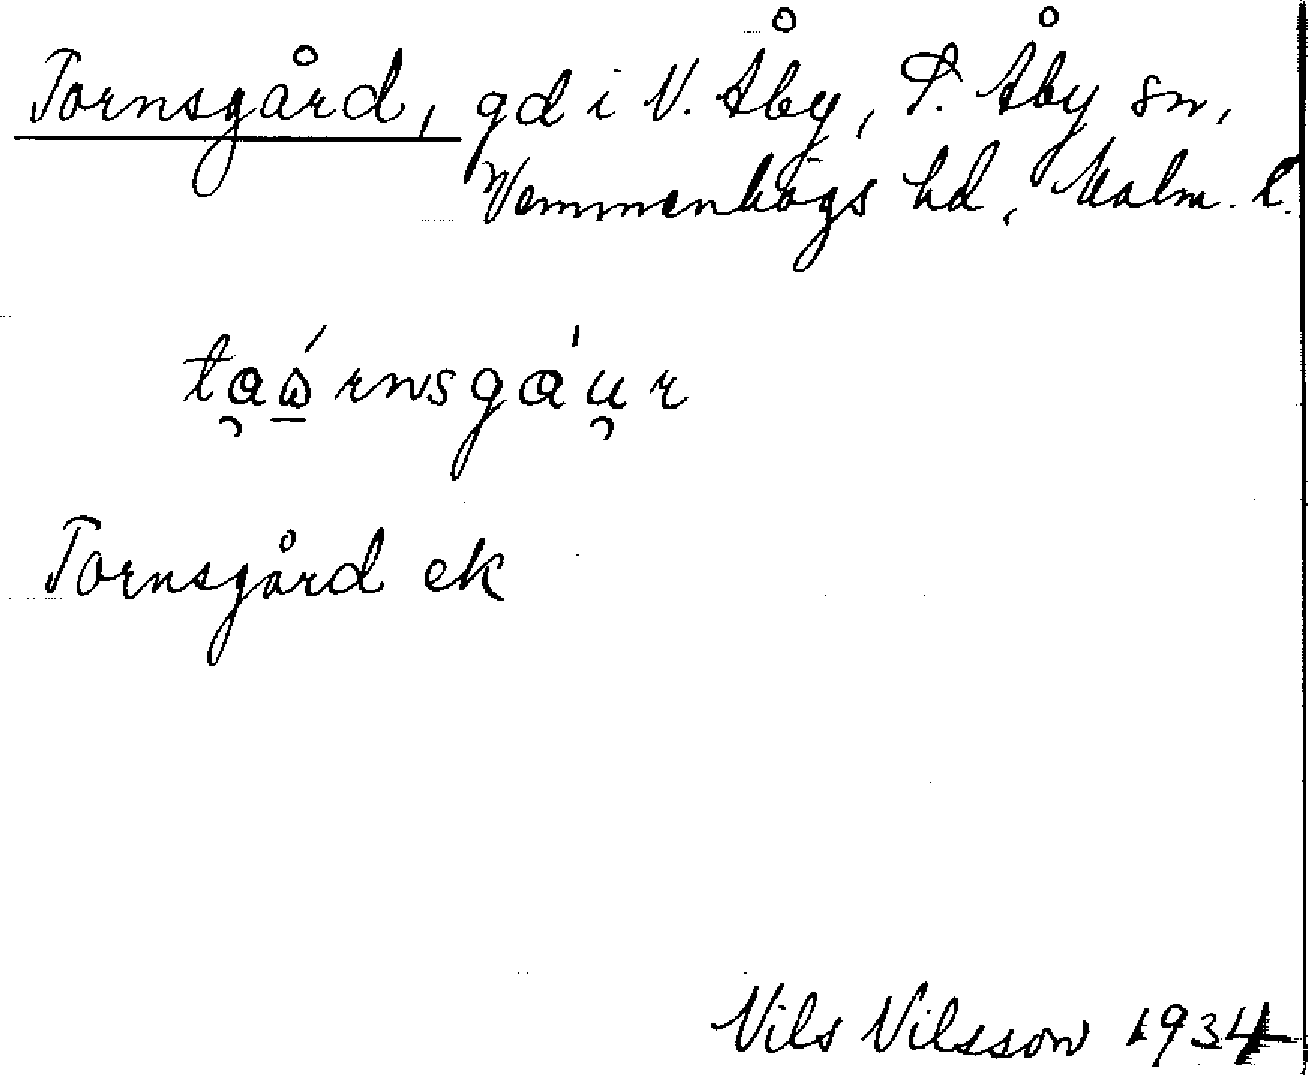 Tornsgård, gd i V. Åby, S. Åby sn,
Vemmenhögs hd, Malm. l.
Tornsgård ek
Nils Nilsson 1934